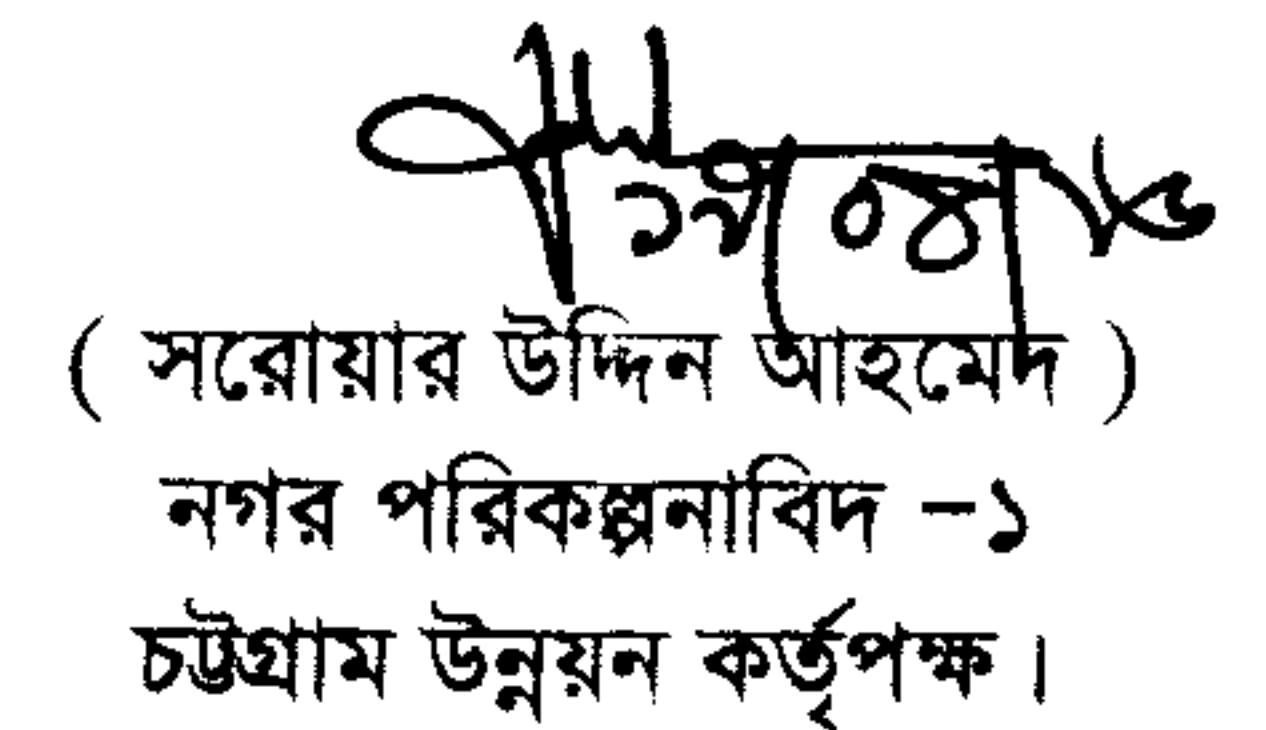 ( সরোয়ার উদ্দিন আহমেদ )
নগর পরিকল্পনাবিদ -১
চট্টগ্রাম উন্নয়ন কর্তৃপক্ষ ।